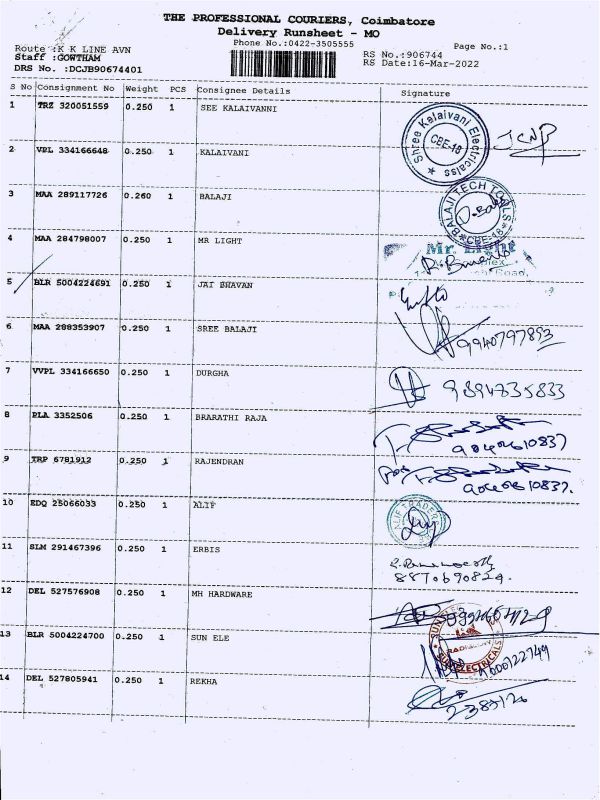 THE PROFESSIONAL COURIERS, Coimbatore
Delivery Runsheet - MO
Phone No.:0422-3505555
Page No.:1
Route :K K LINE AVN
Staff :GOWTHAM
DRS No. :DCJB90674401
RS No.:906744
RS Date:16-Mar-2022
S No Consignment No Weight PCS Consignee Details Signature
1 TRZ 320051559 0.250 1 SEE KALAIVANNI
Shree Kalaivani Electricalss CBE-18
2 VPL 334166648 0.250 1 KALAIVANI
3 MAA 289117726 0.260 1 BALAJI
BALAJI TECH TOOLS CBE-18
4 MAA 284798007 0.250 1 MR LIGHT
Mr. Light
Road,
5 BLR 5004224691 0.250 1 JAI BHAVAN
6 MAA 288353907 0.250 1 SREE BALAJI
9940797893
7 VVPL 334166650 0.250 1 DURGHA
9894735833
8 PLA 3352506 0.250 1 BRARATHI RAJA
9 TRP 6781912 0.250 1 RAJENDRAN
10 EDQ 25066033 0.250 1 ALIF
11 SLM 291467396 0.250 1 ERBIS
8870690829.
12 DEL 527576908 0.250 1 MH HARDWARE
13 BLR 5004224700 0.250 1 SUN ELE
SUN ELECTRICALS
14 DEL 527805941 0.250 1 REKHA